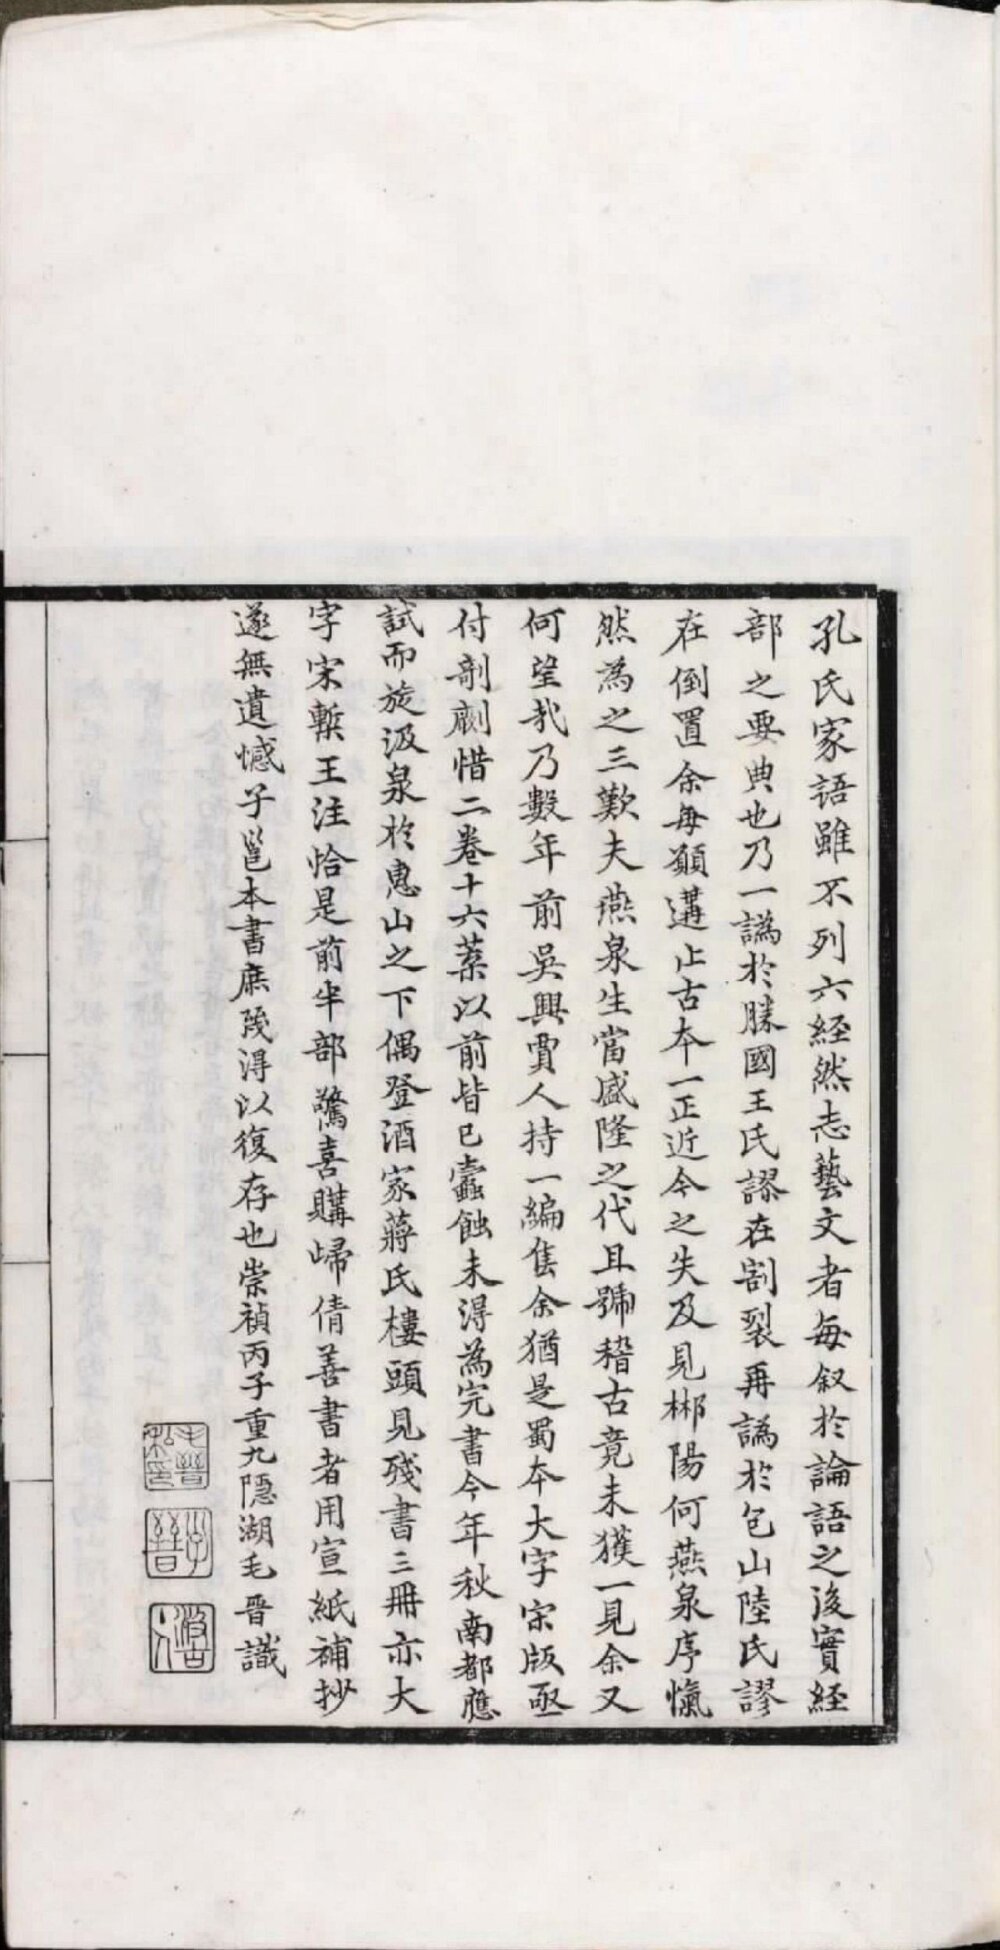 孔氏家語雖不列六經然志藝文者每叙於論語之後實經
部之要典也乃一譌於勝國王氏謬在割裂再譌於包山陸氏謬
在倒置余每願遘止古本一正近今之失及見郴陽何燕泉序愾
然為之三歎夫燕泉生當盛隆之代且號稽古竟未獲一見余又
何望哉乃數年前吳興賈人持一編售余猶是蜀本大字宋版亟
付剞劂惜二卷十六葉以前皆已蠹蝕未得為完書今年秋南都應
試而旋汲泉於惠山之下偶登酒家蔣氏樓頭見殘書三冊亦大
字宋槧王注恰是前半部驚喜購歸倩善書者用宣紙補抄
遂無遺憾子邕本書庶幾得以復存也崇禎丙子重九隱湖毛晉識
毛晉私印
子晉
汲古